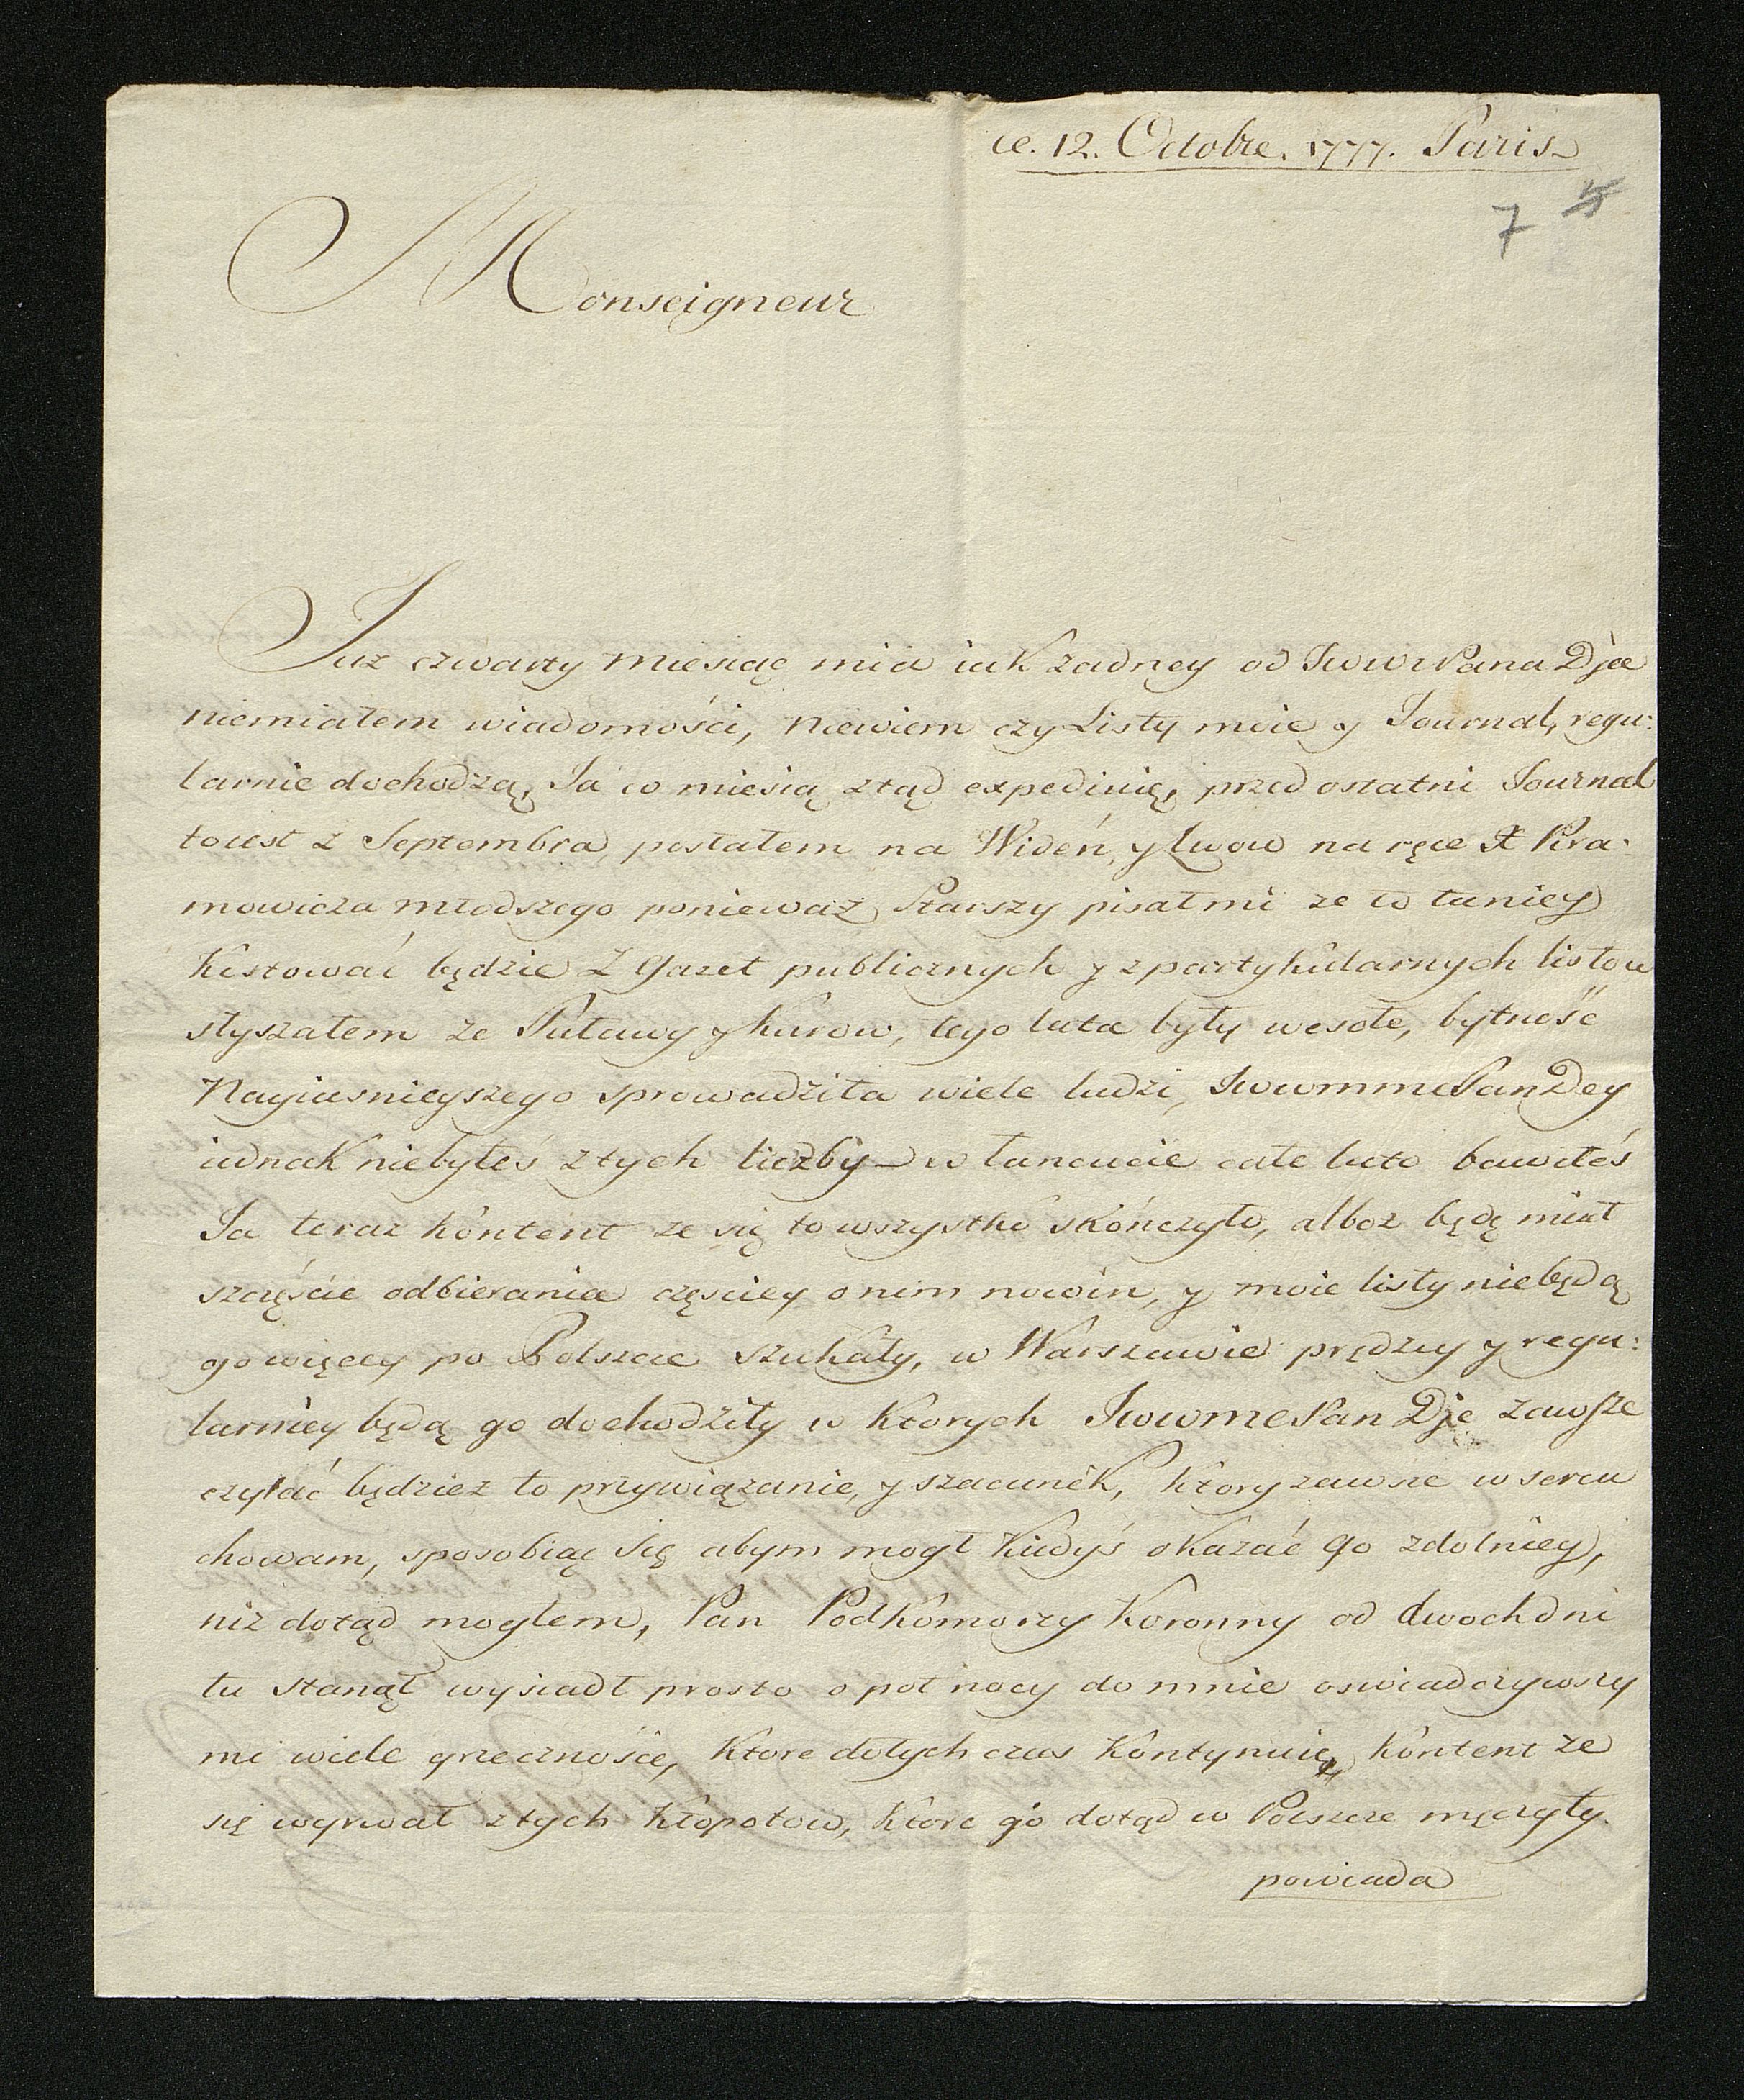 ce. 12. Octobre. 1777. Paris
7 5
Monseigneur
Juz czwarty miesiąc mia iak zadney od JwwPana Dje
niemiałem wiadomości, niewiem czy Listy moie y Journal, regu:
larnie dochodzą, Ja co miesią ztąd expediuię, przed ostatni Journal
toiest z Septembra posłałem na Wideń, y Lwow na ręce X Pira:
mowicza młodszego poniewaz Starszy pisał mi ze to taniey
kosztować będzie Z Gazet publicznych y z partykularnych listow
słyszałem ze Puławy y Kurow, tego lata były wesołe, bytność
Nayiasnieyszego sprowadziła wiele ludzi, JwwmmePanDey
iednak niebyłeś ztych liczby w Łancucie całe lato bawiłeś
Ja teraz kontent ze się to wszystko skończyło, alboz będę miał
szczęście odbierania częsciey o nim nowin, y moie listy niebędą
go więcey po Polszcze szukały, w Warszawie prędzey y regu:
larniey będą go dochodziły w ktorych JwwmePan Dje zawsze
czytać będziez to przywiązanie, y szacunek, ktory zawsze w sercu
chowam, sposobiąc się abym mogł kiedyś okazać go zdolniey,
niz dotąd mogłem, Pan Podkomorzy Koronny od dwoch dni
tu stanął wysiadł prosto o poł nocy do mnie oswiadczywszy
mi wiele grzecznoście, ktore dotychczas kontynuię, kontent ze
się wyrwał ztych kłopotow, ktore go dotąd w Polszcze męczyły.
powiada